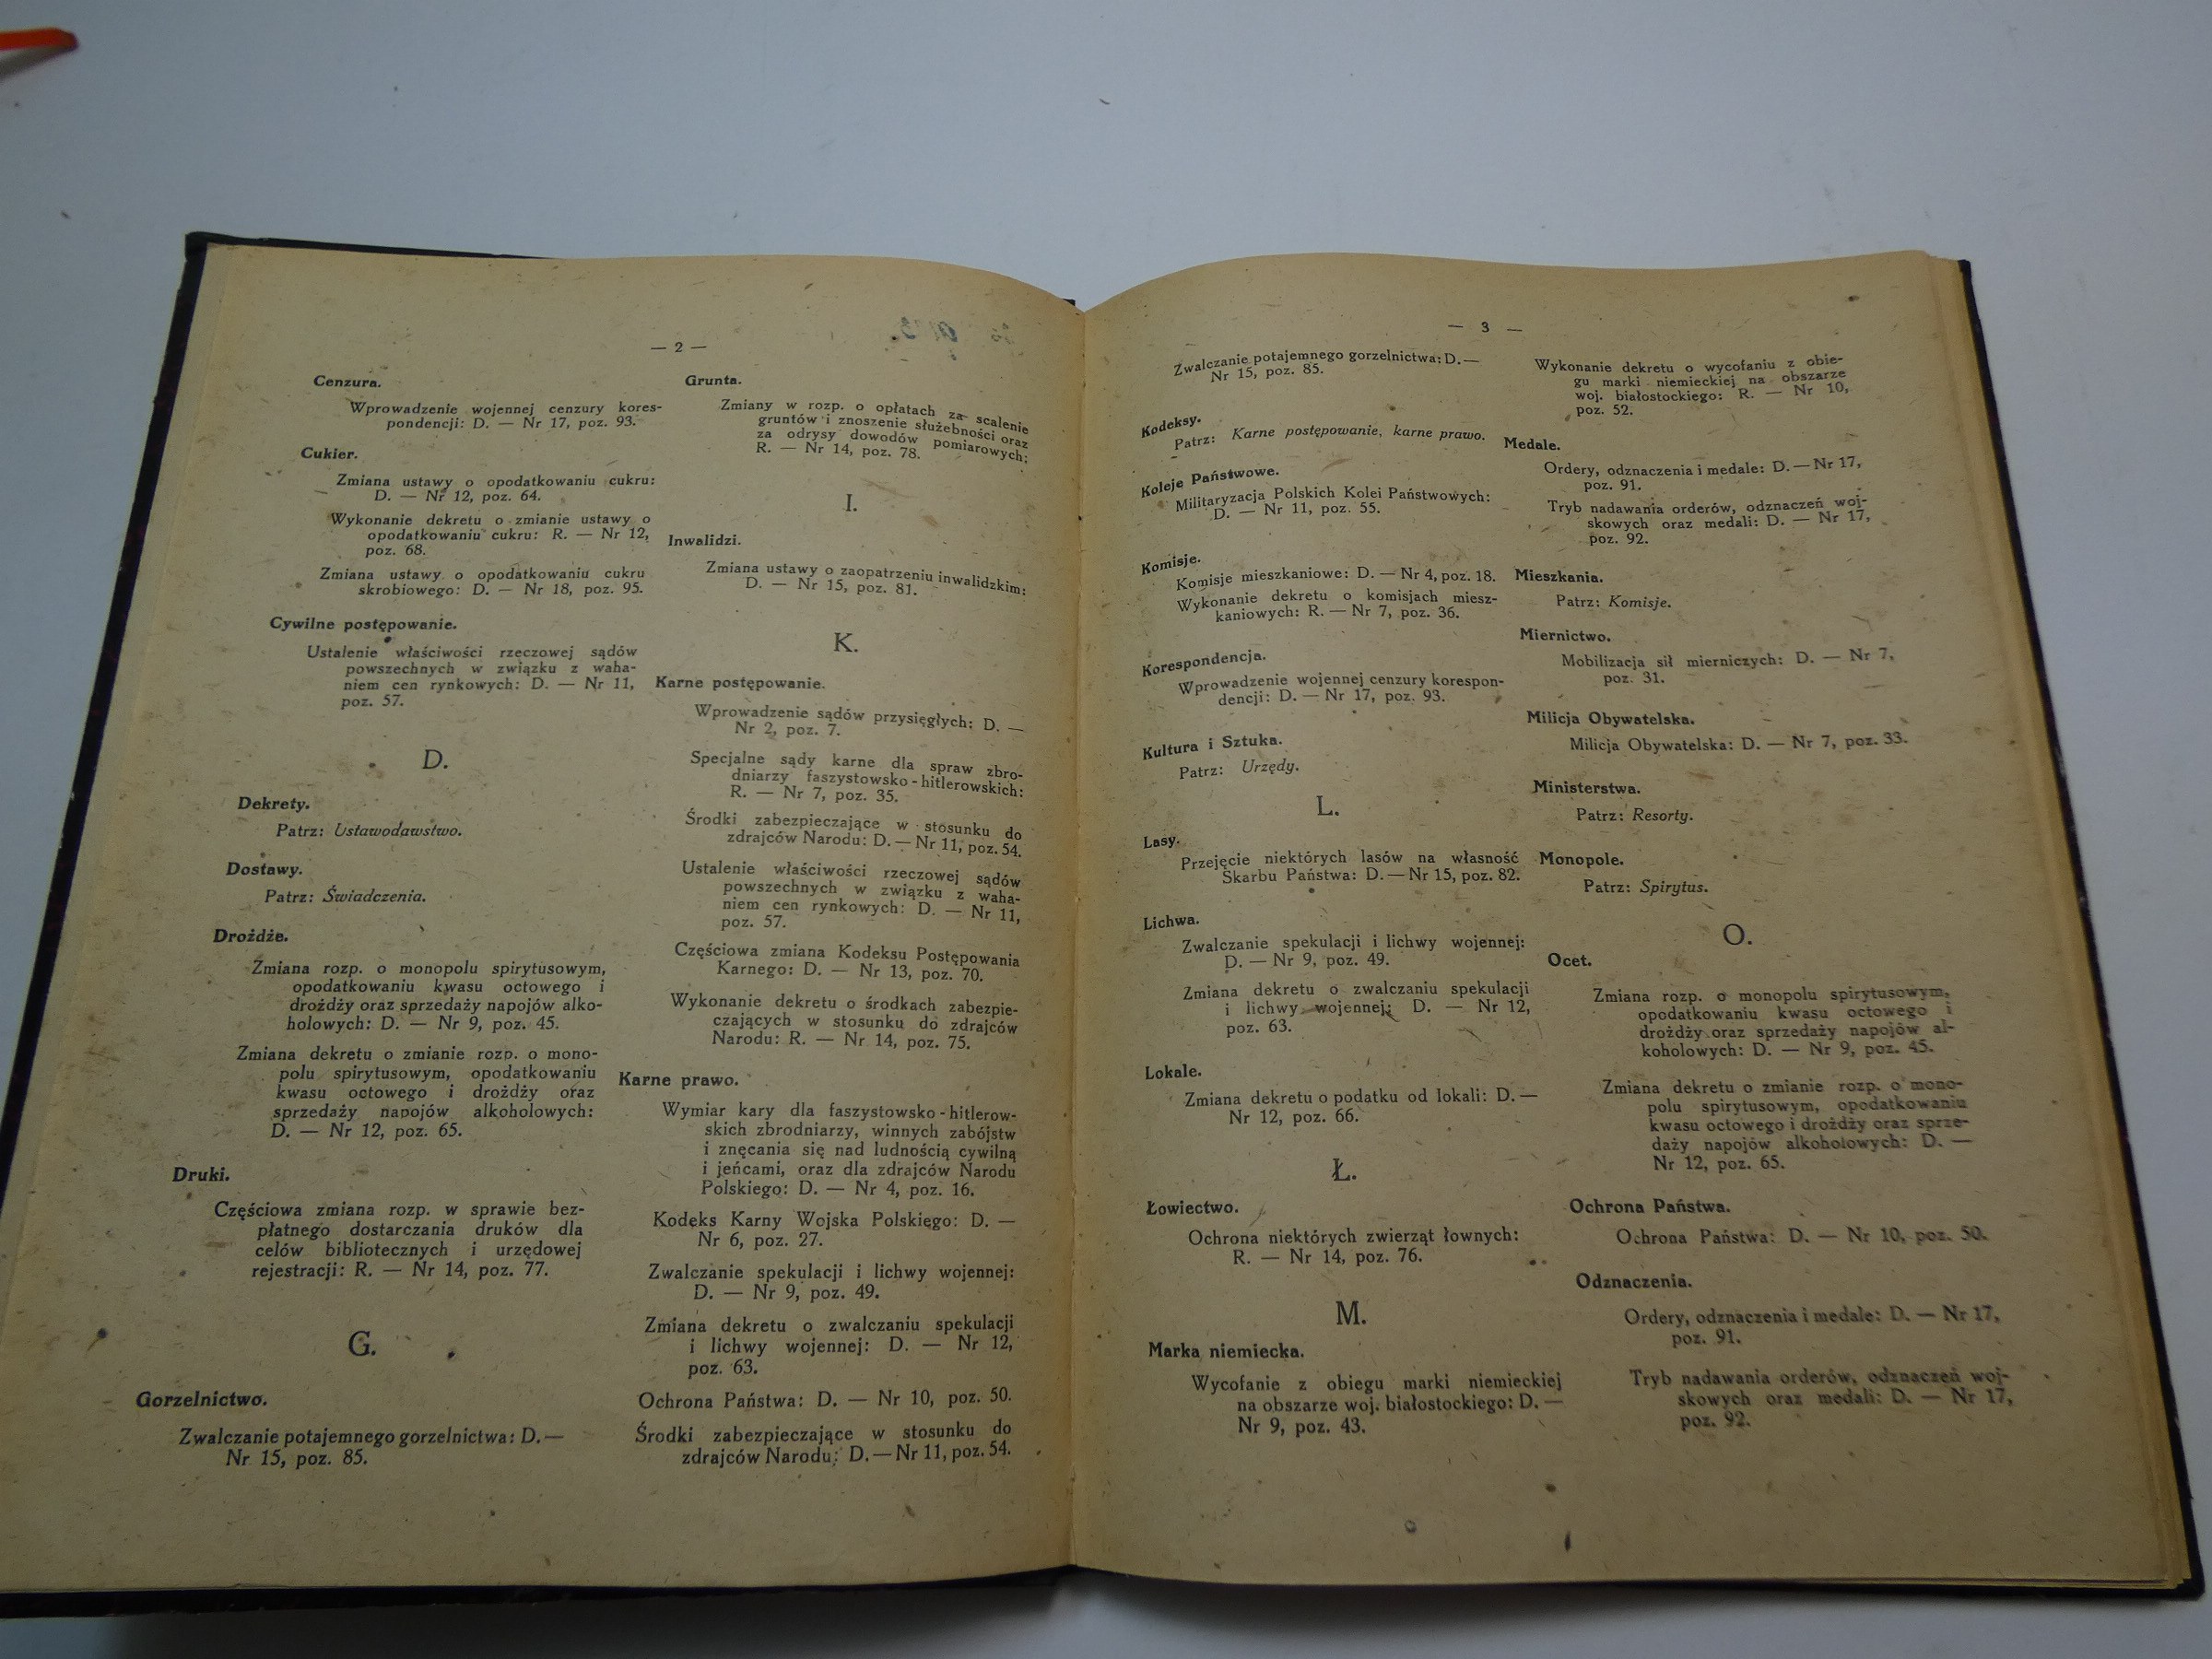 — 2 —
Cenzura.
Wprowadzenie wojennej cenzury kores-
pondencji: D. — Nr 17, poz. 93.
Cukier.
Zmiana ustawy o opodatkowaniu cukru:
D. — Nr 12, poz. 64.
Wykonanie dekretu o zmianie ustawy o
opodatkowaniu cukru: R. — Nr 12,
poz. 68.
Zmiana ustawy o opodatkowaniu cukru
skrobiowego: D. — Nr 18, poz. 95.
Cywilne postępowanie.
Ustalenie właściwości rzeczowej sądów
powszechnych w związku z waha-
niem cen rynkowych: D. — Nr 11,
poz. 57.
D.
Dekrety.
Patrz: Ustawodawstwo.
Dostawy.
Patrz: Świadczenia.
Drożdże.
Zmiana rozp. o monopolu spirytusowym,
opodatkowaniu kwasu octowego i
drożdży oraz sprzedaży napojów alko-
holowych: D. — Nr 9, poz. 45.
Zmiana dekretu o zmianie rozp. o mono-
polu spirytusowym, opodatkowaniu
kwasu octowego i drożdży oraz
sprzedaży napojów alkoholowych:
D. — Nr 12, poz. 65.
Druki.
Częściowa zmiana rozp. w sprawie bez-
płatnego dostarczania druków dla
celów bibliotecznych i urzędowej
rejestracji: R. — Nr 14, poz. 77.
G.
Gorzelnictwo.
Zwalczanie potajemnego gorzelnictwa: D. —
Nr 15, poz. 85.
Grunta.
Zmiany w rozp. o opłatach za scalenie
gruntów i znoszenie służebności oraz
za odrysy dowodów pomiarowych:
R. — Nr 14, poz. 78.
I.
Inwalidzi.
Zmiana ustawy o zaopatrzeniu inwalidzkim:
D. — Nr 15, poz. 81.
K.
Karne postępowanie.
Wprowadzenie sądów przysięgłych: D. —
Nr 2, poz. 7.
Specjalne sądy karne dla spraw zbro-
dniarzy faszystowsko-hitlerowskich:
R. — Nr 7, poz. 35.
Środki zabezpieczające w stosunku do
zdrajców Narodu: D. — Nr 11, poz. 54.
Ustalenie właściwości rzeczowej sądów
powszechnych w związku z waha-
niem cen rynkowych: D. — Nr 11,
poz. 57.
Częściowa zmiana Kodeksu Postępowania
Karnego: D. — Nr 13, poz. 70.
Wykonanie dekretu o środkach zabezpie-
czających w stosunku do zdrajców
Narodu: R. — Nr 14, poz. 75.
Karne prawo.
Wymiar kary dla faszystowsko-hitlerow-
skich zbrodniarzy, winnych zabójstw
i znęcania się nad ludnością cywilną
i jeńcami, oraz dla zdrajców Narodu
Polskiego: D. — Nr 4, poz. 16.
Kodeks Karny Wojska Polskiego: D. —
Nr 6, poz. 27.
Zwalczanie spekulacji i lichwy wojennej:
D. — Nr 9, poz. 49.
Zmiana dekretu o zwalczaniu spekulacji
i lichwy wojennej: D. — Nr 12,
poz. 63.
Ochrona Państwa: D. — Nr 10, poz. 50.
Środki zabezpieczające w stosunku do
zdrajców Narodu: D. — Nr 11, poz. 54.
— 3 —
Zwalczanie potajemnego gorzelnictwa: D. —
Nr 15, poz. 85.
Kodeksy.
Patrz: Karne postępowanie, karne prawo.
Koleje Państwowe.
Militaryzacja Polskich Kolei Państwowych:
D. — Nr 11, poz. 55.
Komisje.
Komisje mieszkaniowe: D. — Nr 4, poz. 18.
Wykonanie dekretu o komisjach miesz-
kaniowych: R. — Nr 7, poz. 36.
Korespondencja.
Wprowadzenie wojennej cenzury korespon-
dencji: D. — Nr 17, poz. 93.
Kultura i Sztuka.
Patrz: Urzędy.
L.
Lasy.
Przejęcie niektórych lasów na własność
Skarbu Państwa: D. — Nr 15, poz. 82.
Lichwa.
Zwalczanie spekulacji i lichwy wojennej:
D. — Nr 9, poz. 49.
Zmiana dekretu o zwalczaniu spekulacji
i lichwy wojennej: D. — Nr 12,
poz. 63.
Lokale.
Zmiana dekretu o podatku od lokali: D. —
Nr 12, poz. 66.
Ł.
Łowiectwo.
Ochrona niektórych zwierząt łownych:
R. — Nr 14, poz. 76.
M.
Marka niemiecka.
Wycofanie z obiegu marki niemieckiej
na obszarze woj. białostockiego: D. —
Nr 9, poz. 43.
Wykonanie dekretu o wycofaniu z obie-
gu marki niemieckiej na obszarze
woj. białostockiego: R. — Nr 10,
poz. 52.
Medale.
Ordery, odznaczenia i medale: D. — Nr 17,
poz. 91.
Tryb nadawania orderów, odznaczeń woj-
skowych oraz medali: D. — Nr 17,
poz. 92.
Mieszkania.
Patrz: Komisje.
Miernictwo.
Mobilizacja sił mierniczych: D. — Nr 7,
poz. 31.
Milicja Obywatelska.
Milicja Obywatelska: D. — Nr 7, poz. 33.
Ministerstwa.
Patrz: Resorty.
Monopole.
Patrz: Spirytus.
O.
Ocet.
Zmiana rozp. o monopolu spirytusowym,
opodatkowaniu kwasu octowego i
drożdży oraz sprzedaży napojów al-
koholowych: D. — Nr 9, poz. 45.
Zmiana dekretu o zmianie rozp. o mono-
polu spirytusowym, opodatkowaniu
kwasu octowego i drożdży oraz sprze-
daży napojów alkoholowych: D. —
Nr 12, poz. 65.
Ochrona Państwa.
Ochrona Państwa: D. — Nr 10, poz. 50.
Odznaczenia.
Ordery, odznaczenia i medale: D. — Nr 17,
poz. 91.
Tryb nadawania orderów, odznaczeń woj-
skowych oraz medali: D. — Nr 17,
poz. 92.